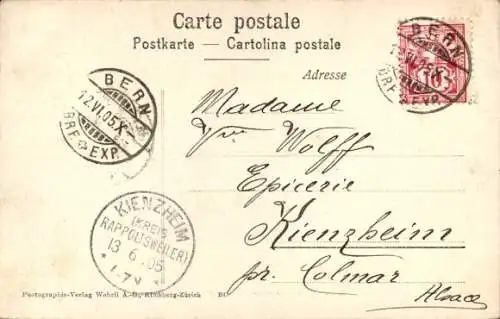 Carte postale
Postkarte — Cartolina postale
Adresse
BERN
12.VI.05.X
BRF. EXP.
BERN
12.VI.05.X
BRF. EXP.
10
Madame
Wolff
Epicerie
Kienzheim
pr. Colmar
Alsace
KIENZHEIM
(KREIS
RAPPOLTSWEILER)
13 6 05
1-7V
Photographie-Verlag Wehrli A.-G., Kilchberg-Zürich